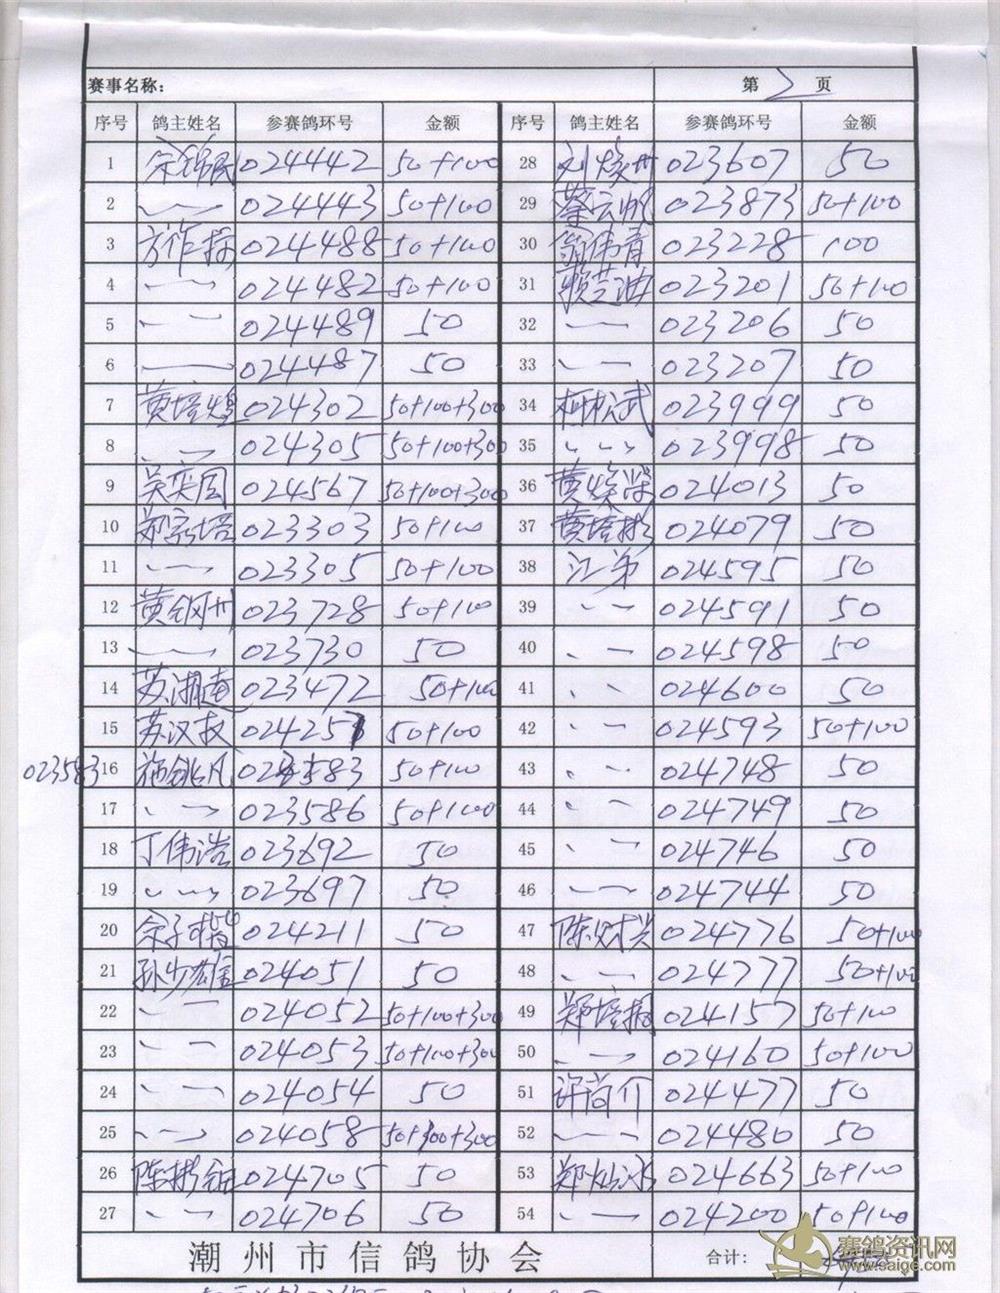 赛事名称： 第 2 页
序号 鸽主姓名 参赛鸽环号 金额 序号 鸽主姓名 参赛鸽环号 金额
1 024442 50+100 28 023607 50
2 〃 024443 50+100 29 蔡云帆 023873 50+100
3 方作 024488 50+100 30 翁伟青 023228 100
4 〃 024482 50+100 31 023201 50+100
5 〃 024489 50 32 〃 023206 50
6 〃 024487 50 33 〃 023207 50
7 黄培煌 024302 50+100+300 34 柯松武 023999 50
8 〃 024305 50+100+300 35 〃 023998 50
9 吴奕国 024567 50+100+300 36 黄焕荣 024013 50
10 023303 50+100 37 黄培彬 024079 50
11 〃 023305 50+100 38 江弟 024595 50
12 黄钢州 023728 50+100 39 〃 024591 50
13 〃 023730 50 40 〃 024598 50
14 苏湘 023472 50+100 41 〃 024600 50
15 苏汉 024257 50+100 42 〃 024593 50+100
023583 16 583 50+100 43 〃 024748 50
17 〃 023586 50+100 44 〃 024749 50
18 丁伟浩 023692 50 45 〃 024746 50
19 〃 023697 50 46 〃 024744 50
20 余子 024211 50 47 陈 024776 50+100
21 孙少雄 024051 50 48 〃 024777 50+100
22 〃 024052 50+100+300 49 郑培 024157 50+100
23 〃 024053 50+100+300 50 〃 024160 50+100
24 〃 024054 50 51 许尚介 024477 50
25 〃 024058 50+300+300 52 〃 024480 50
26 陈彬 024705 50 53 郑 024663 50+100
27 〃 024706 50 54 〃 024200 50+100
潮州市信鸽协会 合计：
赛鸽资讯网
www.saige.com